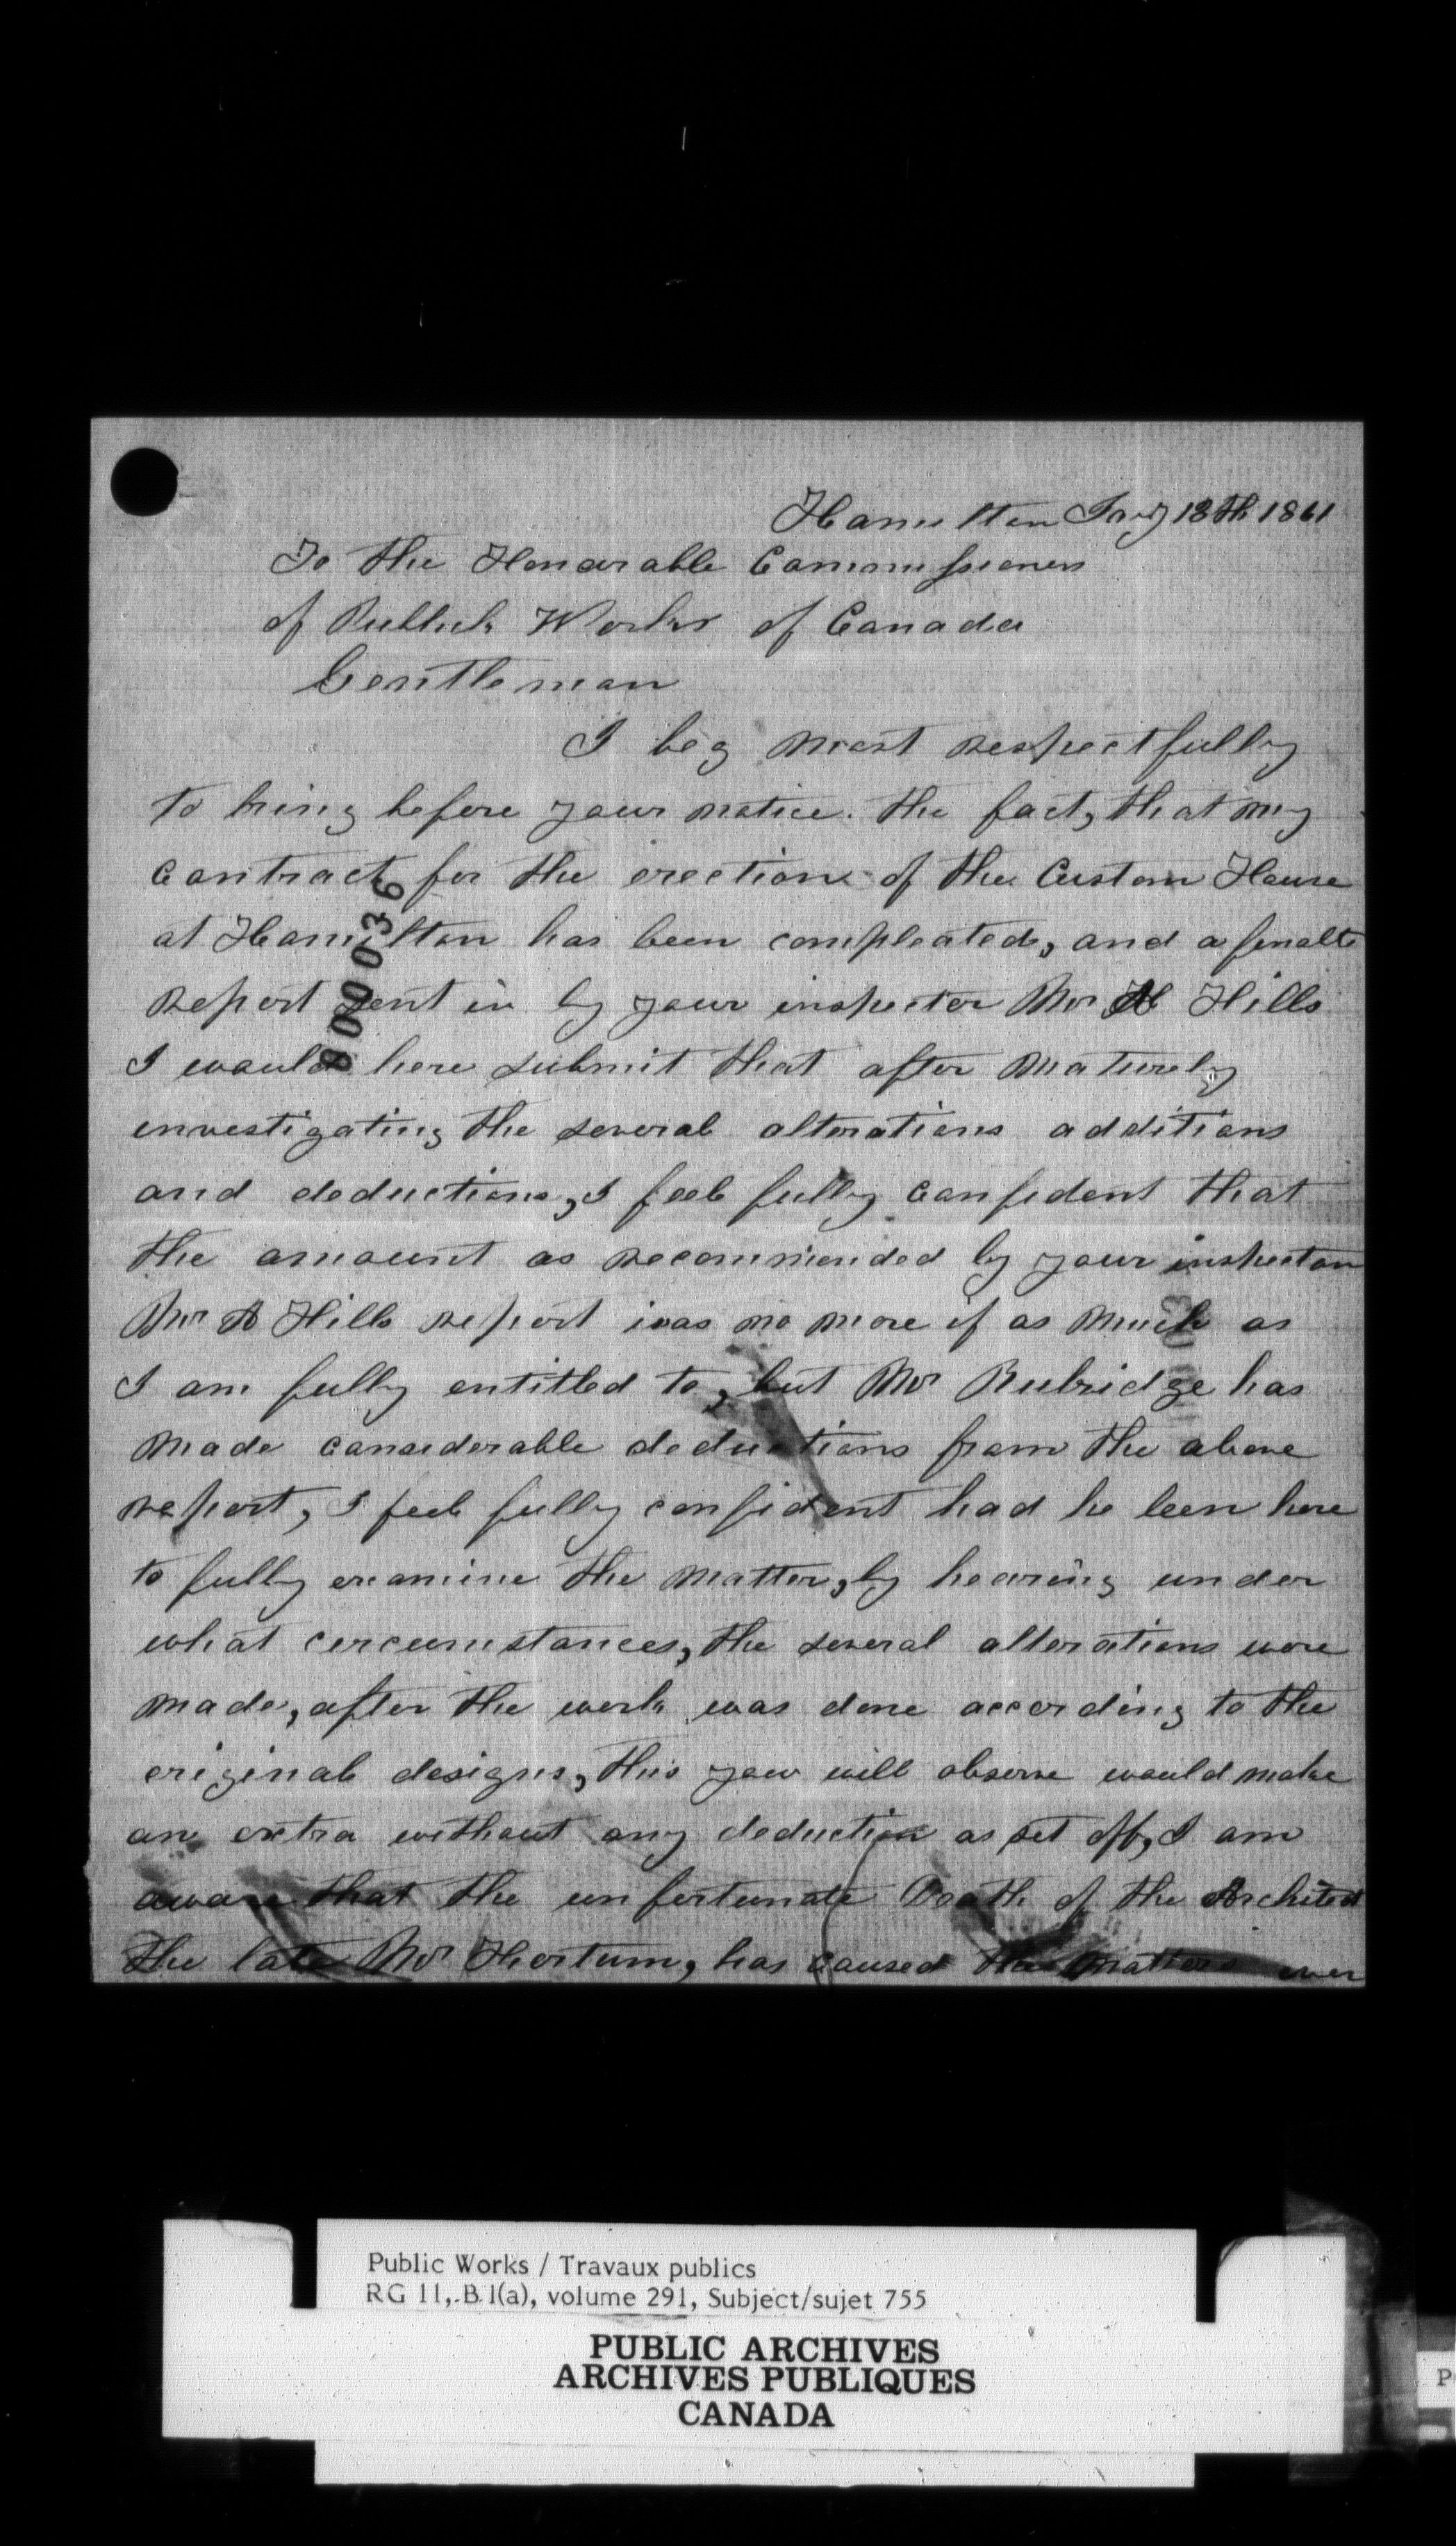 Hamilton Jany 18th 1861
To the Honarable Commissioners
of Publick Works of Canada
Gentleman
I beg most respectfully
to bring before your notice. the fact, that my
contract for the erection of the Custom House
at Hamilton has been compleated, and a finalle
report sent in by your inspector Mr H Hills
I would here submit that after maturely
investigating the several alterations additions
and deductions, I feel fully confident that
the amount as recommended by your inspector
Mr Hills report was no more if as much as
I am fully entitled to, but Mr Rubridge has
made considerable deductions from the above
report, I feel fully confident had he been here
to fully examine the matter, by hearing under
what cercumstances, the several alterations were
made, after the work was done according to the
original designs, this you will observe would make
an extra without any deduction as set off, I am
aware that the unfortunate Death of the Architect
the late Mr Hortum, has caused the matters over
000036
Public Works / Travaux publics
RG 11, B 1(a), volume 291, Subject/sujet 755
PUBLIC ARCHIVES
ARCHIVES PUBLIQUES
CANADA